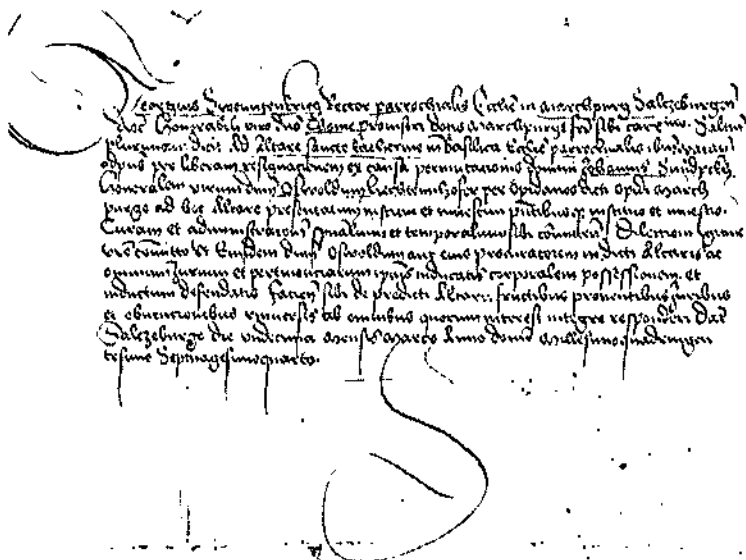 Georgius Rector parrochialis Ecclesie in Marchpurg Salczeburgen
dioc Honorabili viro dno provisori domus Marchpurge sibi carissimo Salutem
plurimam dicit Ad Altare sancte katherine in Basilica Ecclesie parrochialis ibidem vacan
per liberam resignacionem ex causa permutacionis domini Johannis
Honorabilem virum dnm Oswoldum per Opidanos dicti Opidi March
purge ad hoc Altare presentatum institui et investivi pntibusque instituo et investio.
Curam et administracionem spualium et temporalium sibi committens
vre committo ut Eundem dnm Oswoldum aut eius procuratorem in dicti Altaris ac
omnium Jurium et pertinenciarum ipsius inducatis corporalem possessionem et
inductum defendatis facien sibi de predicti Altaris fructibus proventibus Juribus
et obvencionibus universis ab omnibus quorum interest integre responderi Dat
Salczeburge die undecima mensis Marcii Anno domini Millesimoquadringen
tesimo Septuagesimoquarto.